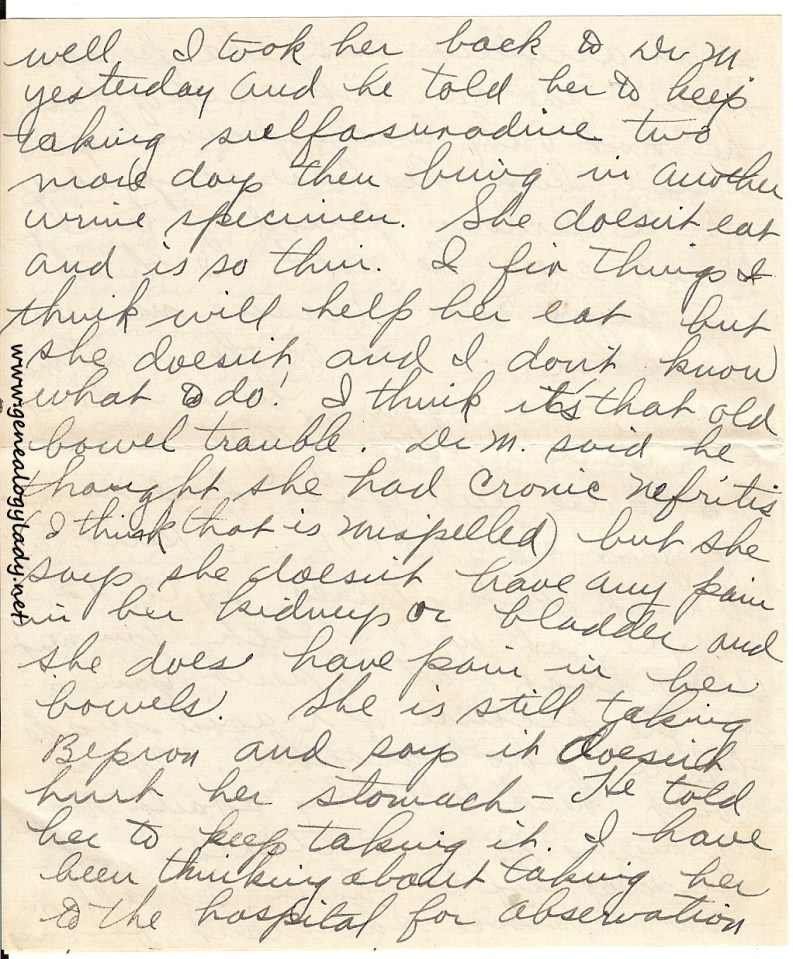 well I took her back to Dr M
yesterday and he told her to keep
taking sulfasuradine two
more days then bring in another
urine specimen. She doesn't eat
and is so thin. I fix things I
think will help her eat but
she doesn't and I don't know
what to do! I think it's that old
bowel trouble. Dr M. said he
thought she had Cronic Nefritis
(I think that is mispelled) but she
says she doesn't have any pain
in her kidneys or bladder and
she does have pain in her
bowels. She is still taking
Bepron and says it doesn't
hurt her stomach - He told
her to keep taking it. I have
been thinking about taking her
to the hospital for observation
www.genealogylady.net